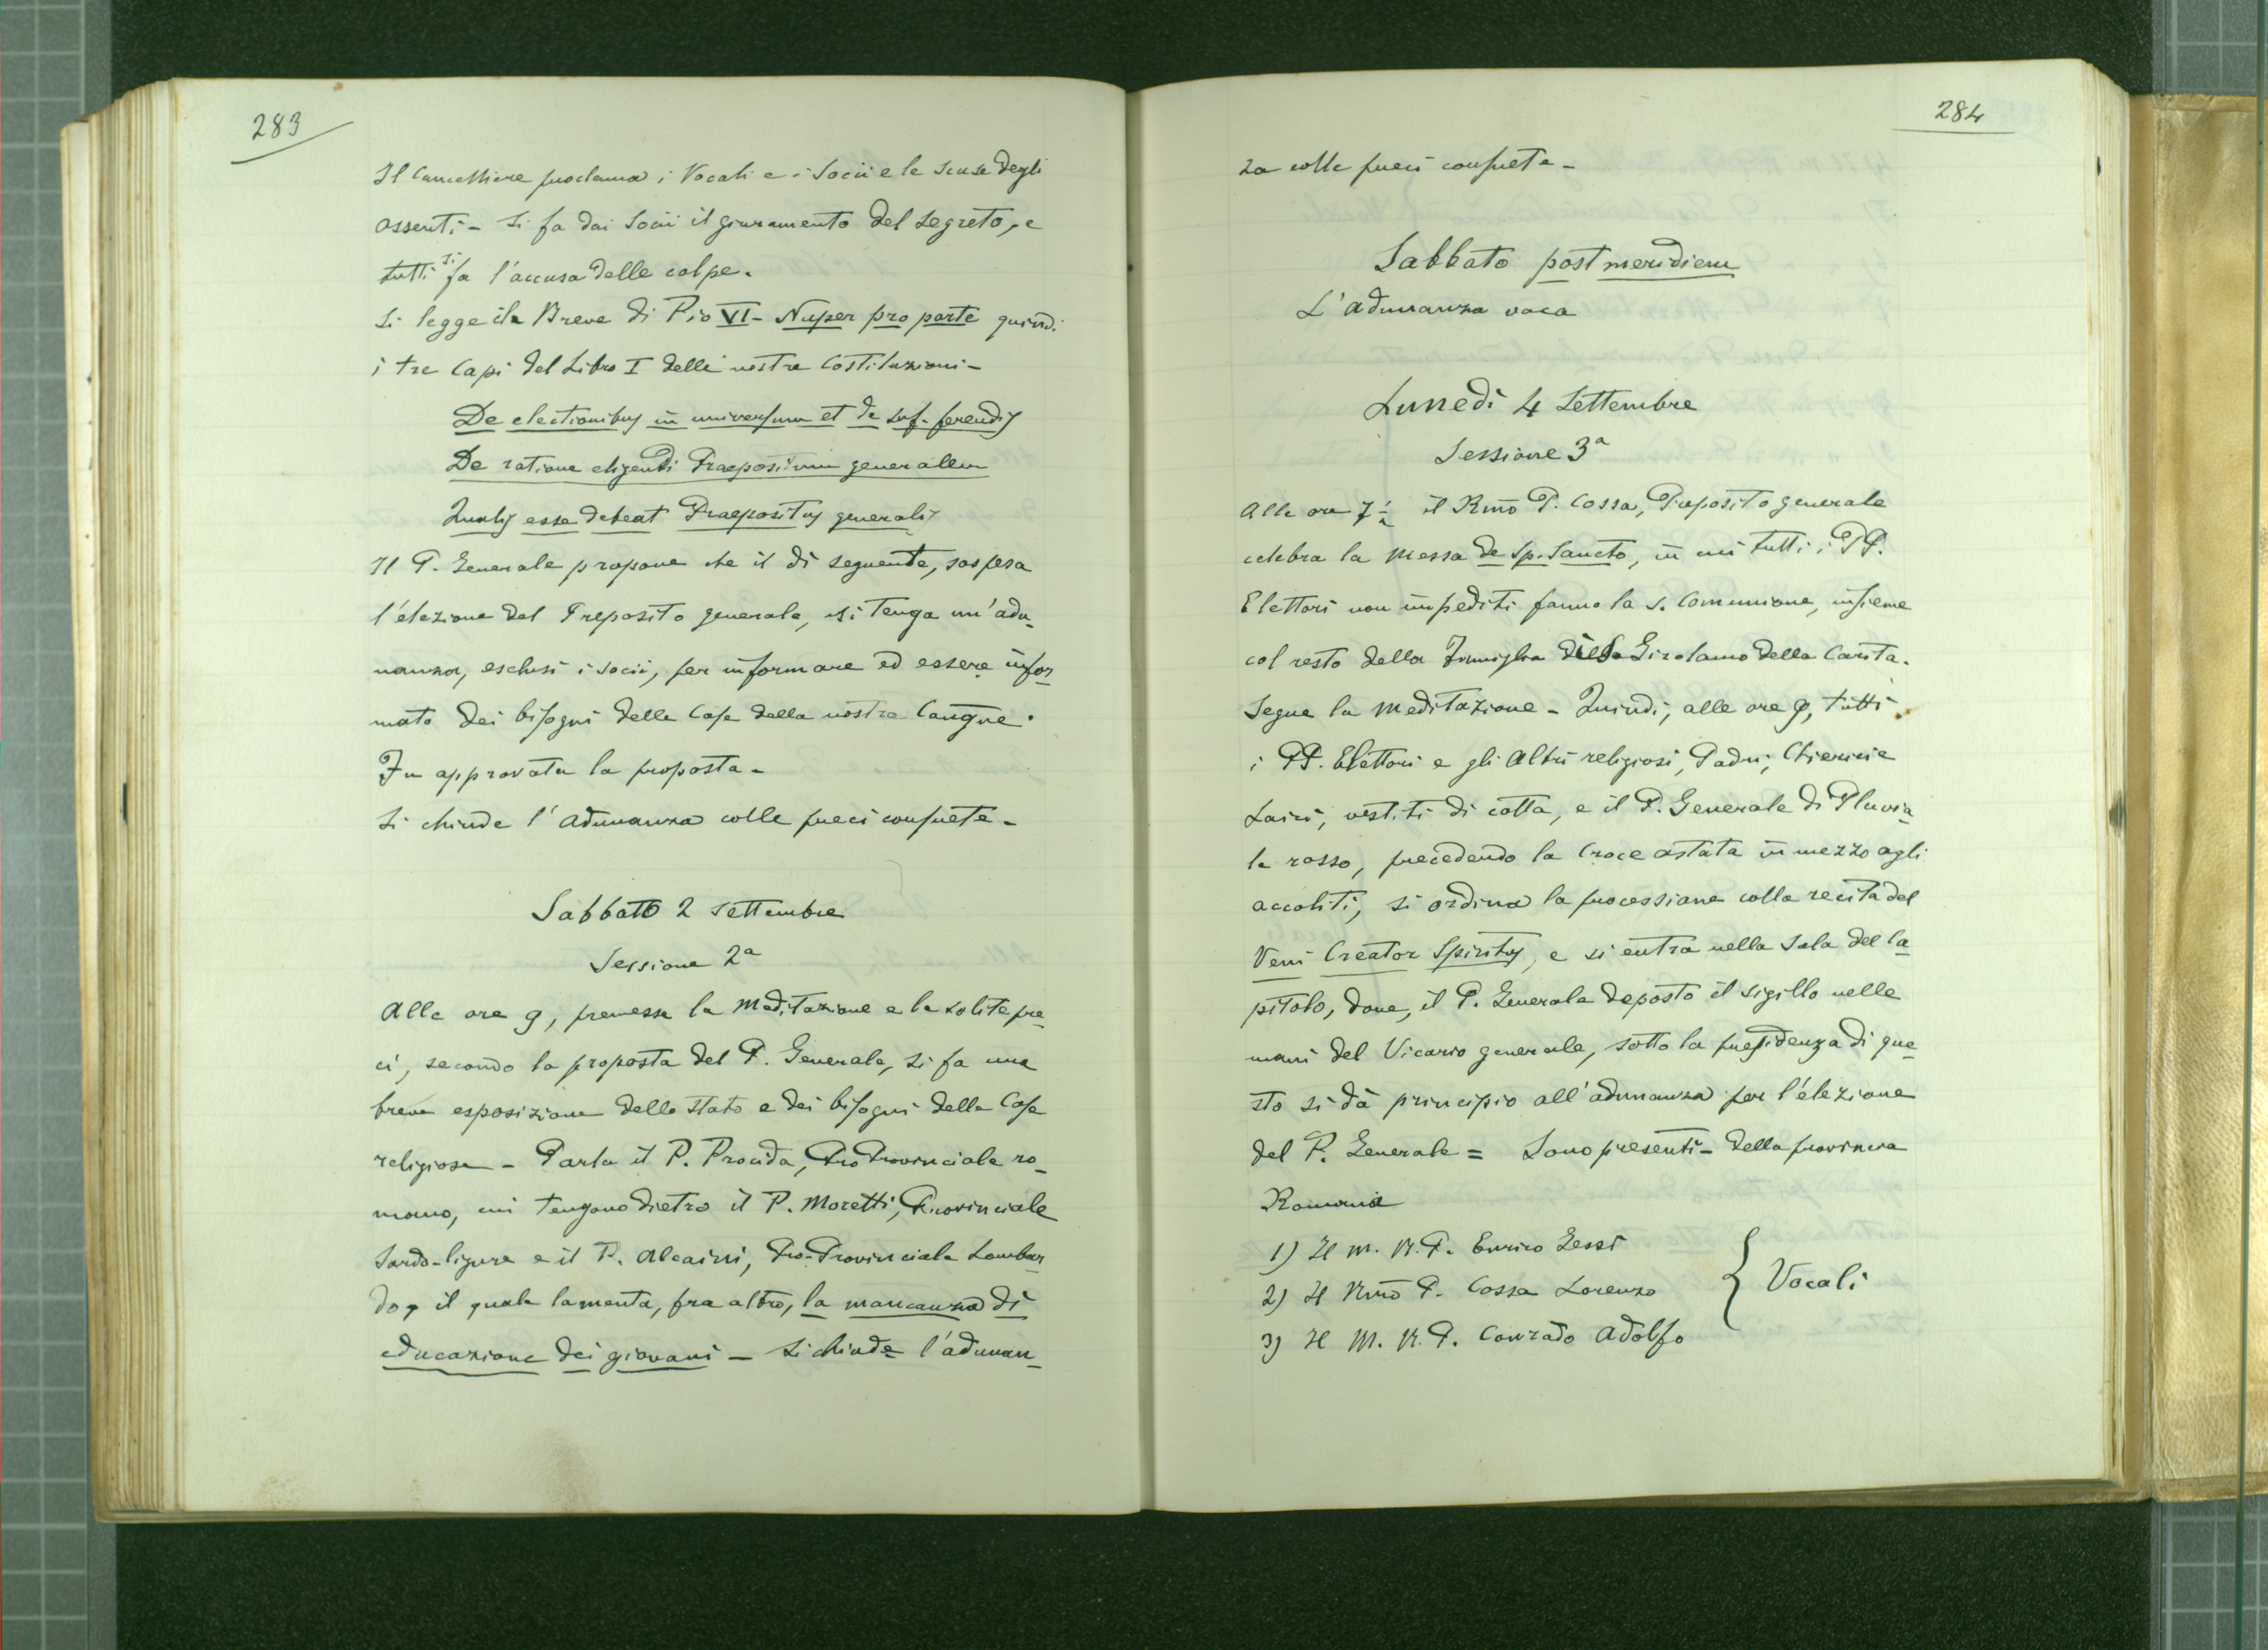 283
Il Cancelliere proclama i Vocali e i Socii e le scuse degli
assenti - Si fa dai Socii il giuramento del segreto, e
tutti si fa l'accusa delle colpe.
Si legge il Breve di Pio VI - Nuper pro parte quindi
i tre Capi del Libro I delle nostre Costituzioni -
De electionibus in universum et de suf. ferendis
De ratione eligendi Praepositum generalem
Qualis esse debeat Praepositus generalis
Il P. Generale propone che il dì seguente, sospesa
l'elezione del Preposito generale, si tenga un'adu-
nanza, esclusi i socii, per informare ed essere infor-
mato dei bisogni delle Case della nostra Congne.
Fu approvata la proposta -
Si chiude l'adunanza colle preci consuete -
Sabbato 2 settembre
Sessione 2a
Alle ore 9, premessa la Meditazione e le solite pre-
ci, secondo la proposta del P. Generale, si fa una
breve esposizione dello stato e dei bisogni delle Case
religiose - Parla il P. Procida, Pro Provinciale ro-
mano, cui tengono dietro il P. Moretti, Provinciale
Sardo-ligure e il P. Alcaini, Pro-Provinciale Lombar-
do, il quale lamenta, fra altro, la mancanza di
educazione dei giovani - Si chiude l'adunan-
284
za colle preci consuete -
Sabbato post meridiem
L'adunanza vaca
Lunedì 4 Settembre
Sessione 3a
Alle ore 7 1/2 il Rmo P. Cossa, Preposito generale
celebra la messa de Sp. Sancto, in cui tutti i PP.
Elettori non impediti fanno la s. Comunione, insieme
col resto della Famiglia di S. Girolamo della Carità.
Segue la meditazione - Quindi, alle ore 9, tutti
i PP. Elettori e gli altri religiosi, Padri, Chierici e
Laici, vestiti di cotta, e il P. Generale di Pluvia-
le rosso, precedendo la Croce astata in mezzo agli
accoliti, si ordina la processione colla recita del
Veni Creator Spiritus, e si entra nella Sala del Ca-
pitolo, dove, il P. Generale deposto il sigillo nelle
mani del Vicario generale, sotto la presidenza di que-
sto si dà principio all'adunanza per l'elezione
del P. Generale = Sono presenti - Della provincia
Romana
1) Il M. R. P. Enrico Gessi
2) Il Rmo P. Cossa Lorenzo
3) Il M. R. P. Conrado Adolfo
Vocali